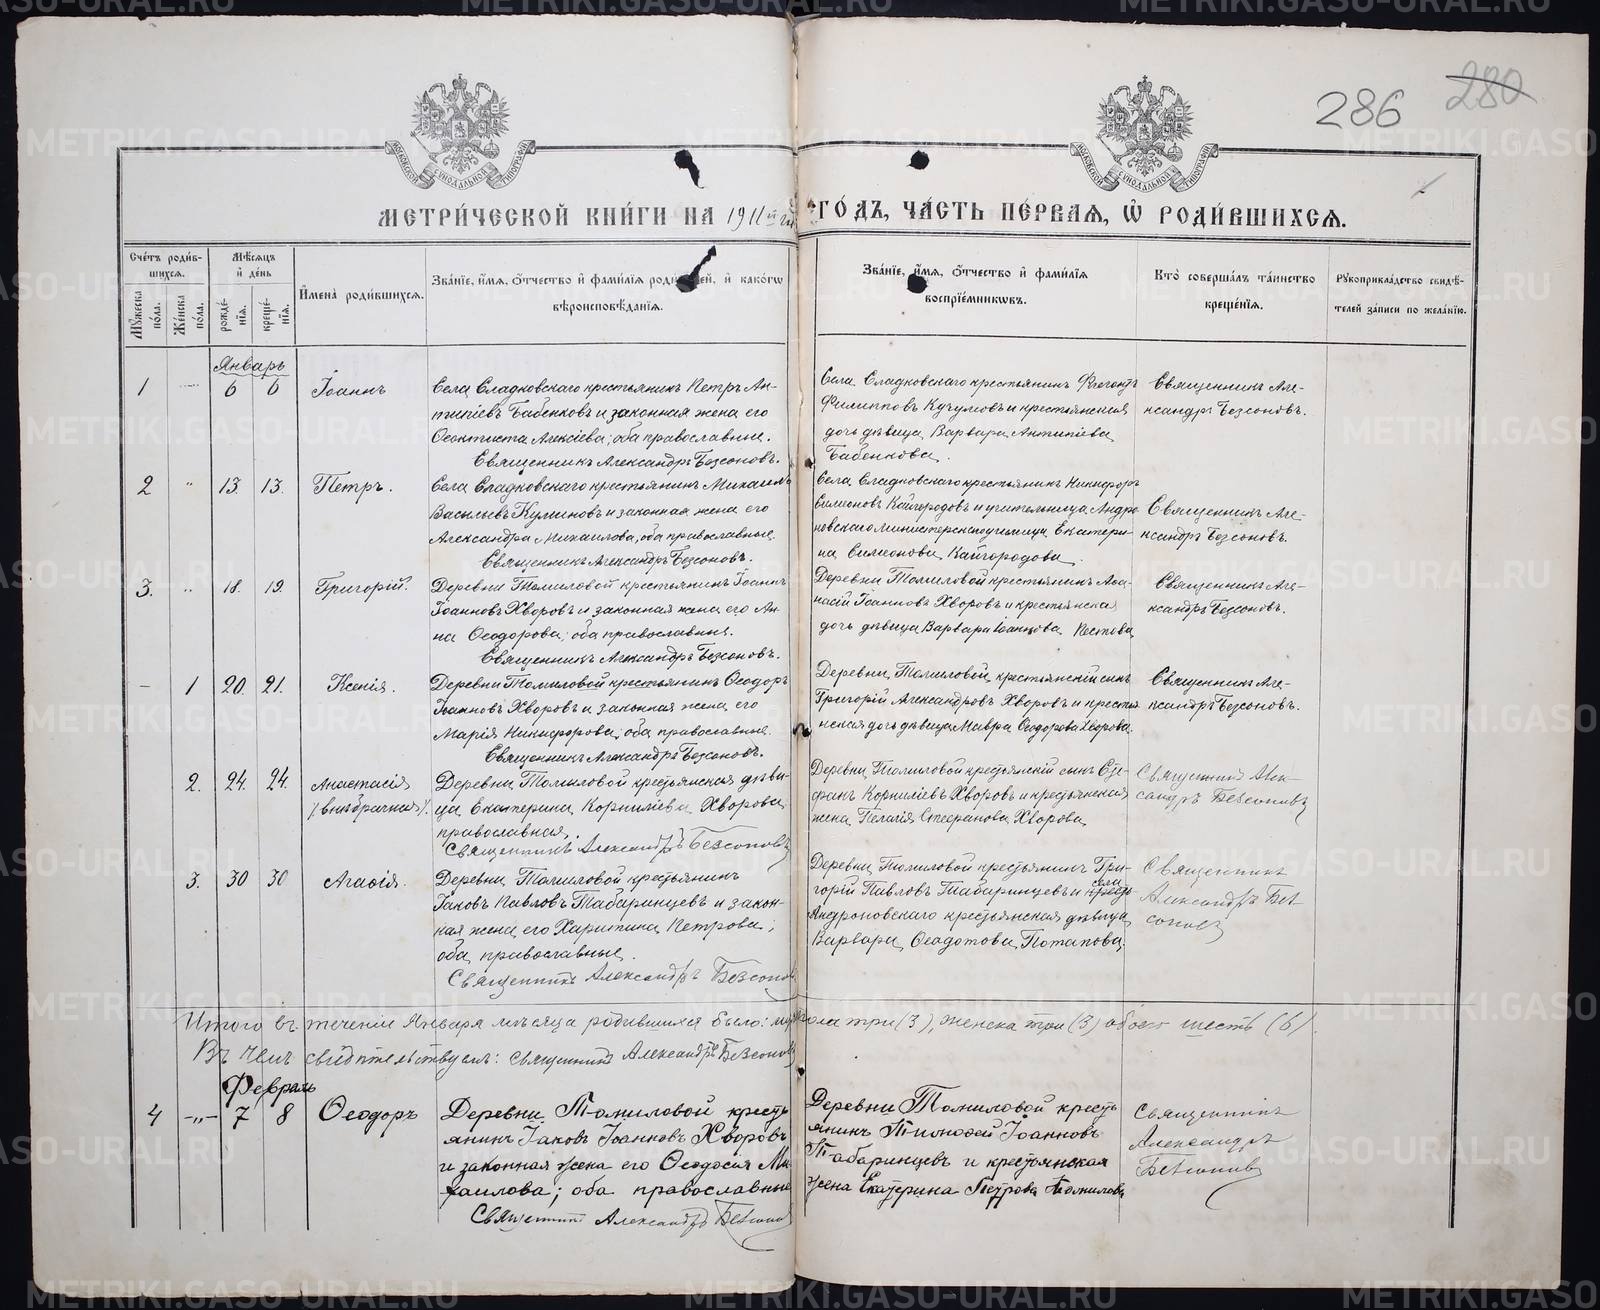 286 280
МЕТРИ́ЧЕСКОЙ КНИ́ГИ НА 1911й ГО́ДЪ, ЧА́СТЬ ПЕ́РВАЯ, Ѡ҆ РОДИ́ВШИХСЯ.
Сче́тъ роди́в-
шихся.
Му́жеска по́ла.
Же́нска по́ла.
Мѣ́сяцъ
и҆ де́нь
рожде́-
нїя.
креще́-
нїя.
И҆мена̀ роди́вшихся.
Зва́нїе, и҆́мя, ѻ҆́тчество и҆ фами́лїя роди́телей, и҆ како́гѡ
вѣроисповѣ́данїя.
Зва́нїе, и҆́мя, ѻ҆́тчество и҆ фами́лїя
воспрїе́мникѡвъ.
Кто̀ соверша́лъ та́инство
креще́нїя.
Рꙋкоприкла́дство свидѣ́-
телей за́писи по жела́нїю.
Январь
1 6 6 Іоаннъ
Села Сладковскаго крестьянинъ Петръ Ан-
типіевъ Бабенковъ и законная жена его
Ѳеоктиста Алексіева; оба православные.
Священникъ Александръ Безсоновъ.
Села Сладковскаго крестьянинъ
Филипповъ Кучумовъ и крестьянская
дочь дѣвица Варвара Антипіева
Бабенкова.
Священникъ Але-
ксандръ Безсоновъ.
2 " 13. 13. Петръ.
Села Сладковскаго крестьянинъ Михаилъ
Васильевъ Куминовъ и законная жена его
Александра Михаилова, оба православные.
Священникъ Александръ Безсоновъ.
Села Сладковскаго крестьянинъ Никифоръ
Симеоновъ Кайгородовъ и учительница Андро-
новскаго министерскаго училища Екатери-
на Симеонова Кайгородова.
Священникъ Але-
ксандръ Безсоновъ.
3. " 18. 19. Григорій.
Деревни Томиловой крестьянинъ Іоаннъ
Іоанновъ Хворовъ и законная жена его Ан-
на Ѳеодорова; оба православные.
Священникъ Александръ Безсоновъ.
Деревни Томиловой крестьянинъ Аѳа-
насій Іоанновъ Хворовъ и крестьянская
дочь дѣвица Варвара Іоаннова
Священникъ Але-
ксандръ Безсоновъ.
– 1 20. 21. Ксенія.
Деревни Томиловой крестьянинъ Ѳеодоръ
Іоанновъ Хворовъ и законная жена его
Марія Никифорова, оба православные.
Священникъ Александръ Безсоновъ.
Деревни Томиловой крестьянскій сынъ
Григорій Александровъ Хворовъ и крестья-
нская дочь дѣвица Мавра Ѳеодорова Хворова.
Священникъ Але-
ксандръ Безсоновъ.
2. 24. 24. Анастасія
(внѣбрачная).
Деревни Томиловой крестьянская дѣви-
ца Екатерина Корниліева Хворова,
православная.
Священникъ Александръ Безсоновъ
Деревни Томиловой крестьянскій сынъ Сте-
фанъ Корниліевъ Хворовъ и крестьянская
жена Пелагія Стефанова Хворова
Священникъ Алек-
сандръ Безсоновъ
3. 30 30 Агаѳія.
Деревни Томиловой крестьянинъ
Іаковъ Павловъ Табаринцевъ и закон-
ная жена его Харитина Петрова;
оба православные.
Священникъ Александръ Безсоновъ
Деревни Томиловой крестьянинъ Гри-
горій Павловъ Табаринцевъ и села
Андроновскаго крестьянская дѣвица
Варвара Ѳеодотова Потапова.
Священникъ
Александръ Без-
соновъ
Итого въ теченіи Января мѣсяца родившихся было: муж. пола три (3), женска три (3) обоего шесть (6).
Въ чемъ свидѣтельствуемъ: Священникъ Александръ Безсоновъ
Февраль
4 –"– 7 8 Ѳеодоръ
Деревни Томиловой кресть-
янинъ Іаковъ Іоанновъ Хворовъ
и законная жена его Ѳеодосія Ми-
хаилова; оба православные
Священникъ Александръ Безсоновъ
Деревни Томиловой кресть-
янинъ Тимоѳей Іоанновъ
Табаринцевъ и крестьянская
жена Екатерина Петрова Томилова
Священникъ
Александръ
Безсоновъ